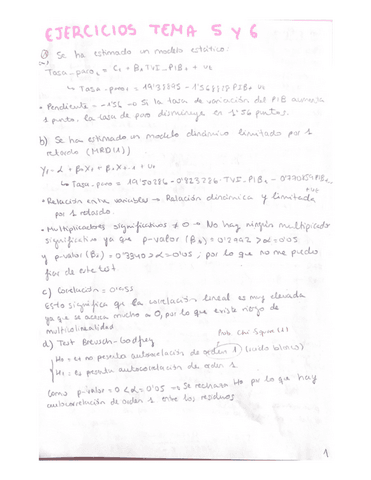 EJERCICIOS TEMA 5 Y 6
a) Se ha estimado un modelo estático:
Tasa_paro_t = C_1 + B_2 TVI_PIB_t + u_t
↳ Tasa_paro_t =
• Pendiente = -1'56 → Si la tasa de variación del PIB aumenta
1 punto, la tasa de paro disminuye en 1'56 puntos.
b) Se ha estimado un modelo dinámico limitado por 1
retardo (MRD(1))
Y_t = α + β_0 X_t + β_1 X_t-1 + u_t
↳ Tasa_paro = 19'50286 - 0'823286 · TVI_PIB_t -
• Relación entre variables → Relación dinámica y limitada
por 1 retardo.
• Multiplicadores significativos ≠ 0 → No hay ningún multiplicador
significativo ya que p-valor = 0'2962 > α = 0'05
y p-valor = 0'3340 > α = 0'05, por lo que no me puedo
fiar de este test
c) Correlación = 0'955
Esto significa que la correlación lineal es muy elevada
ya que se acerca mucho a por lo que existe riesgo de
multicolinealidad
d) Test Breusch-Godfrey
Prob. Chi Square (1)
H_0 = es no presenta autocorrelación de orden 1 (ruido blanco)
H_1 = es presenta autocorrelación de orden 1.
Como p-valor = 0 < α = 0'05 → Se rechaza H_0 por lo que hay
autocorrelación de orden 1 entre los residuos
1